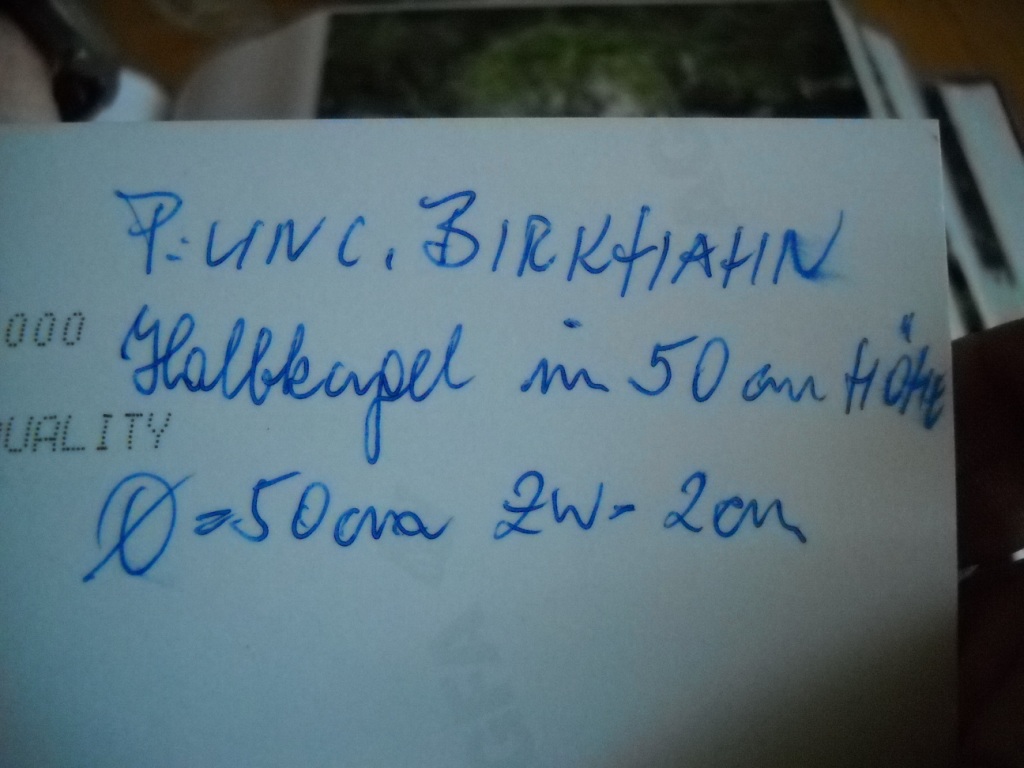 P. UNC. BIRKHAHN
000
Halbkugel in 50 cm HÖHE
QUALITY
Ø = 50 cm ZW - 2 cm